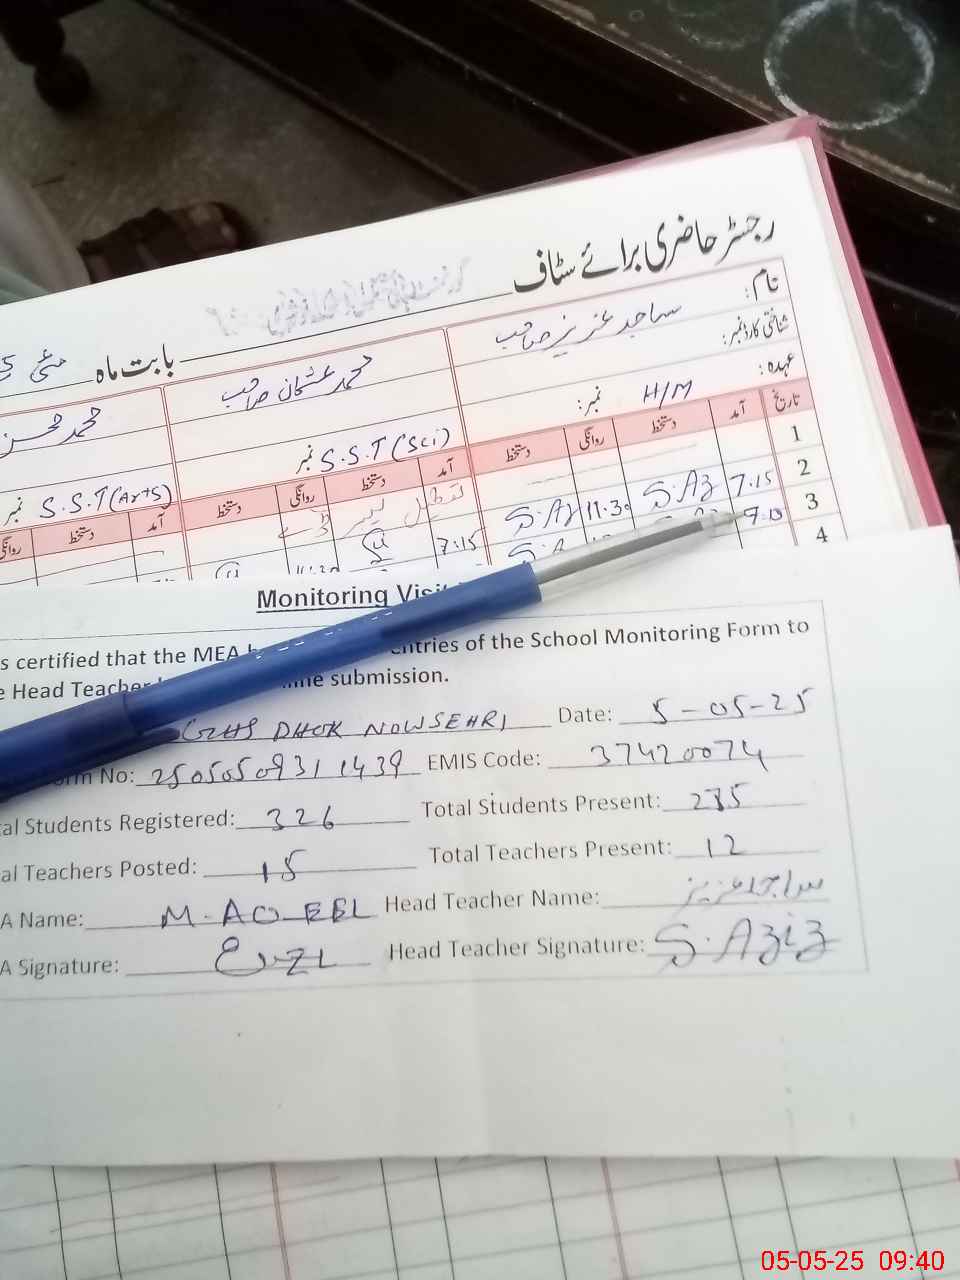 رجسٹر حاضری برائے سٹاف
بابت ماہ مئی
نام: ساجد عزیز صاحب محمد عثمان صاحب محمد
شناختی کارڈ نمبر:
عہدہ: H/M نمبر: S.S.T (Sci) نمبر S.S.T (Arts) نمبر
تاریخ آمد دستخط روانگی دستخط آمد دستخط روانگی دستخط آمد دستخط روانگی
1
2 7.15 S.Az 11.30 S.Az 7:15
3
4
Monitoring
s certified that the MEA entries of the School Monitoring Form to
e Head Teacher submission.
GHS DHOK NOWSEHRI Date: 5-05-25
No: 25050509311439 EMIS Code: 37420074
al Students Registered: 326 Total Students Present: 285
al Teachers Posted: 15 Total Teachers Present: 12
A Name: M. AQEEL Head Teacher Name: ساجد عزیز
A Signature: Head Teacher Signature: S. Aziz
05-05-25 09:40